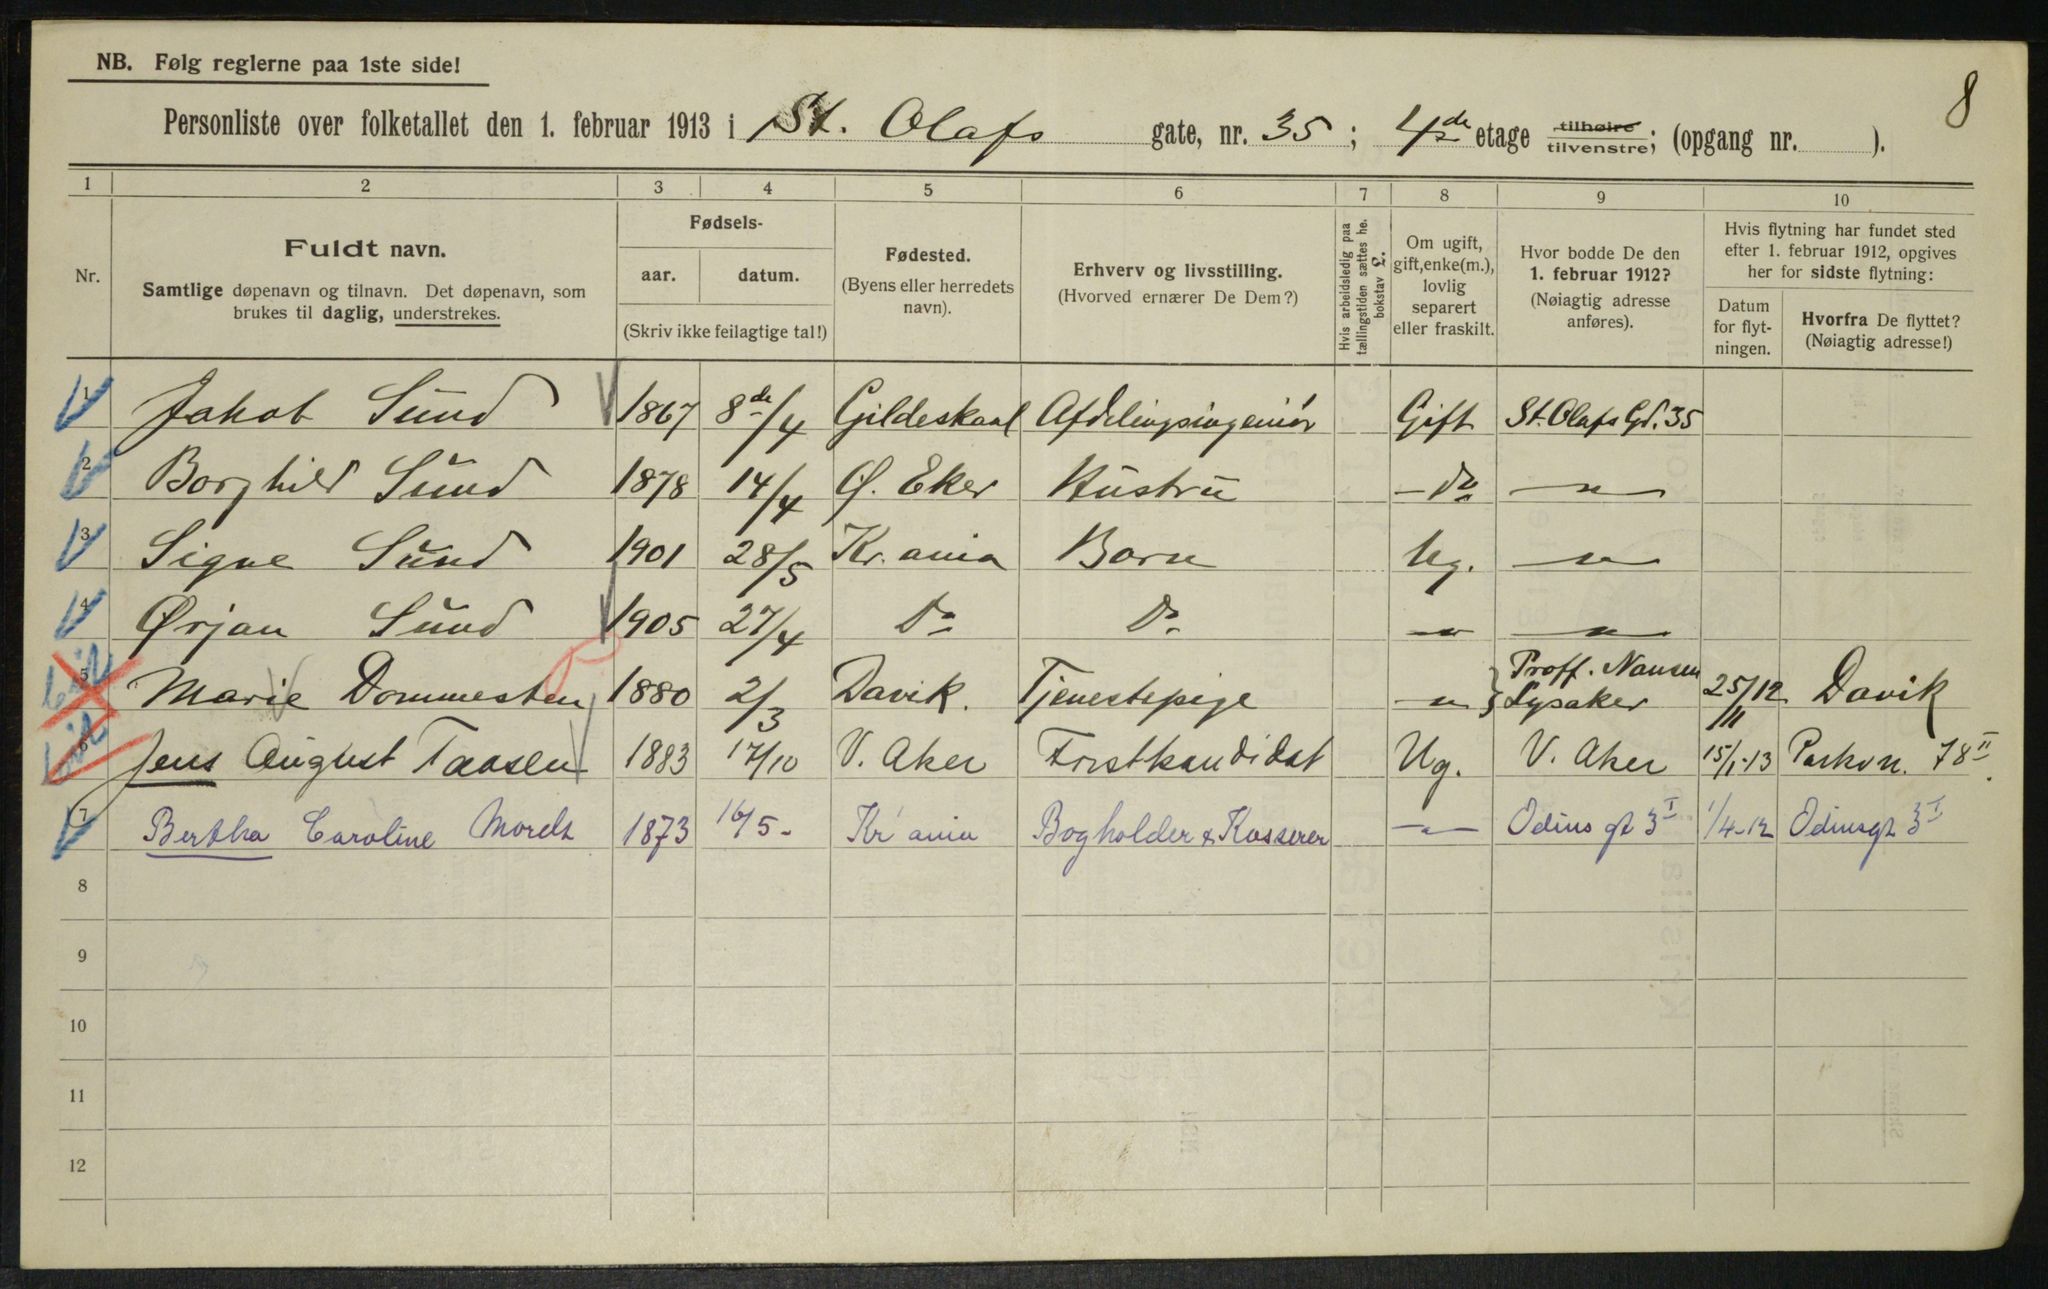 NB. Følg reglerne paa 1ste side!
8
Personliste over folketallet den 1. februar 1913 i St. Olafs gate, nr. 35; 4de etage tilhøire tilvenstre; (opgang nr. ).
1 2 3 4 5 6 7 8 9 10
Nr.
Fuldt navn.
Samtlige døpenavn og tilnavn. Det døpenavn, som
brukes til daglig, understrekes.
Fødsels-
aar. datum.
(Skriv ikke feilagtige tal!)
Fødested.
(Byens eller herredets
navn).
Erhverv og livsstilling.
(Hvorved ernærer De Dem?)
Hvis arbeidsledig paa
tællingstiden sættes he.
bokstav L.
Om ugift,
gift, enke(m.),
lovlig
separert
eller fraskilt.
Hvor bodde De den
1. februar 1912?
(Nøiagtig adresse
anføres).
Hvis flytning har fundet sted
efter 1. februar 1912, opgives
her for sidste flytning:
Datum
for flyt-
ningen.
Hvorfra De flyttet?
(Nøiagtig adresse!)
1 Jakob Sund 1867 8de/4 Gildeskaal Afdelingsingeniør Gift St. Olafs Gd. 35
2 Borghild Sund 1878 14/4 Ø. Eker Hustru - Do - " -
3 Signe Sund 1901 28/5 Kr.ania Barn Ug. - " -
4 Ørjan Sund 1905 27/4 Do Do - " - - " -
5 Marie Dommesten 1880 2/3 Davik. Tjenestepige - " - Proff. Nansen Lysaker 25/12 Davik
6 Jens August Taasen 1883 17/10 V. Aker Forstkandidat Ug. V. Aker 15/1-13 Parkv. 78 II
7 Bertha Caroline Mordt 1873 16/5- Kr ania Bogholder & Kasserer - " - Odins gt 3 I 1/4-12 Odinsgt 3 I
8
9
10
11
12